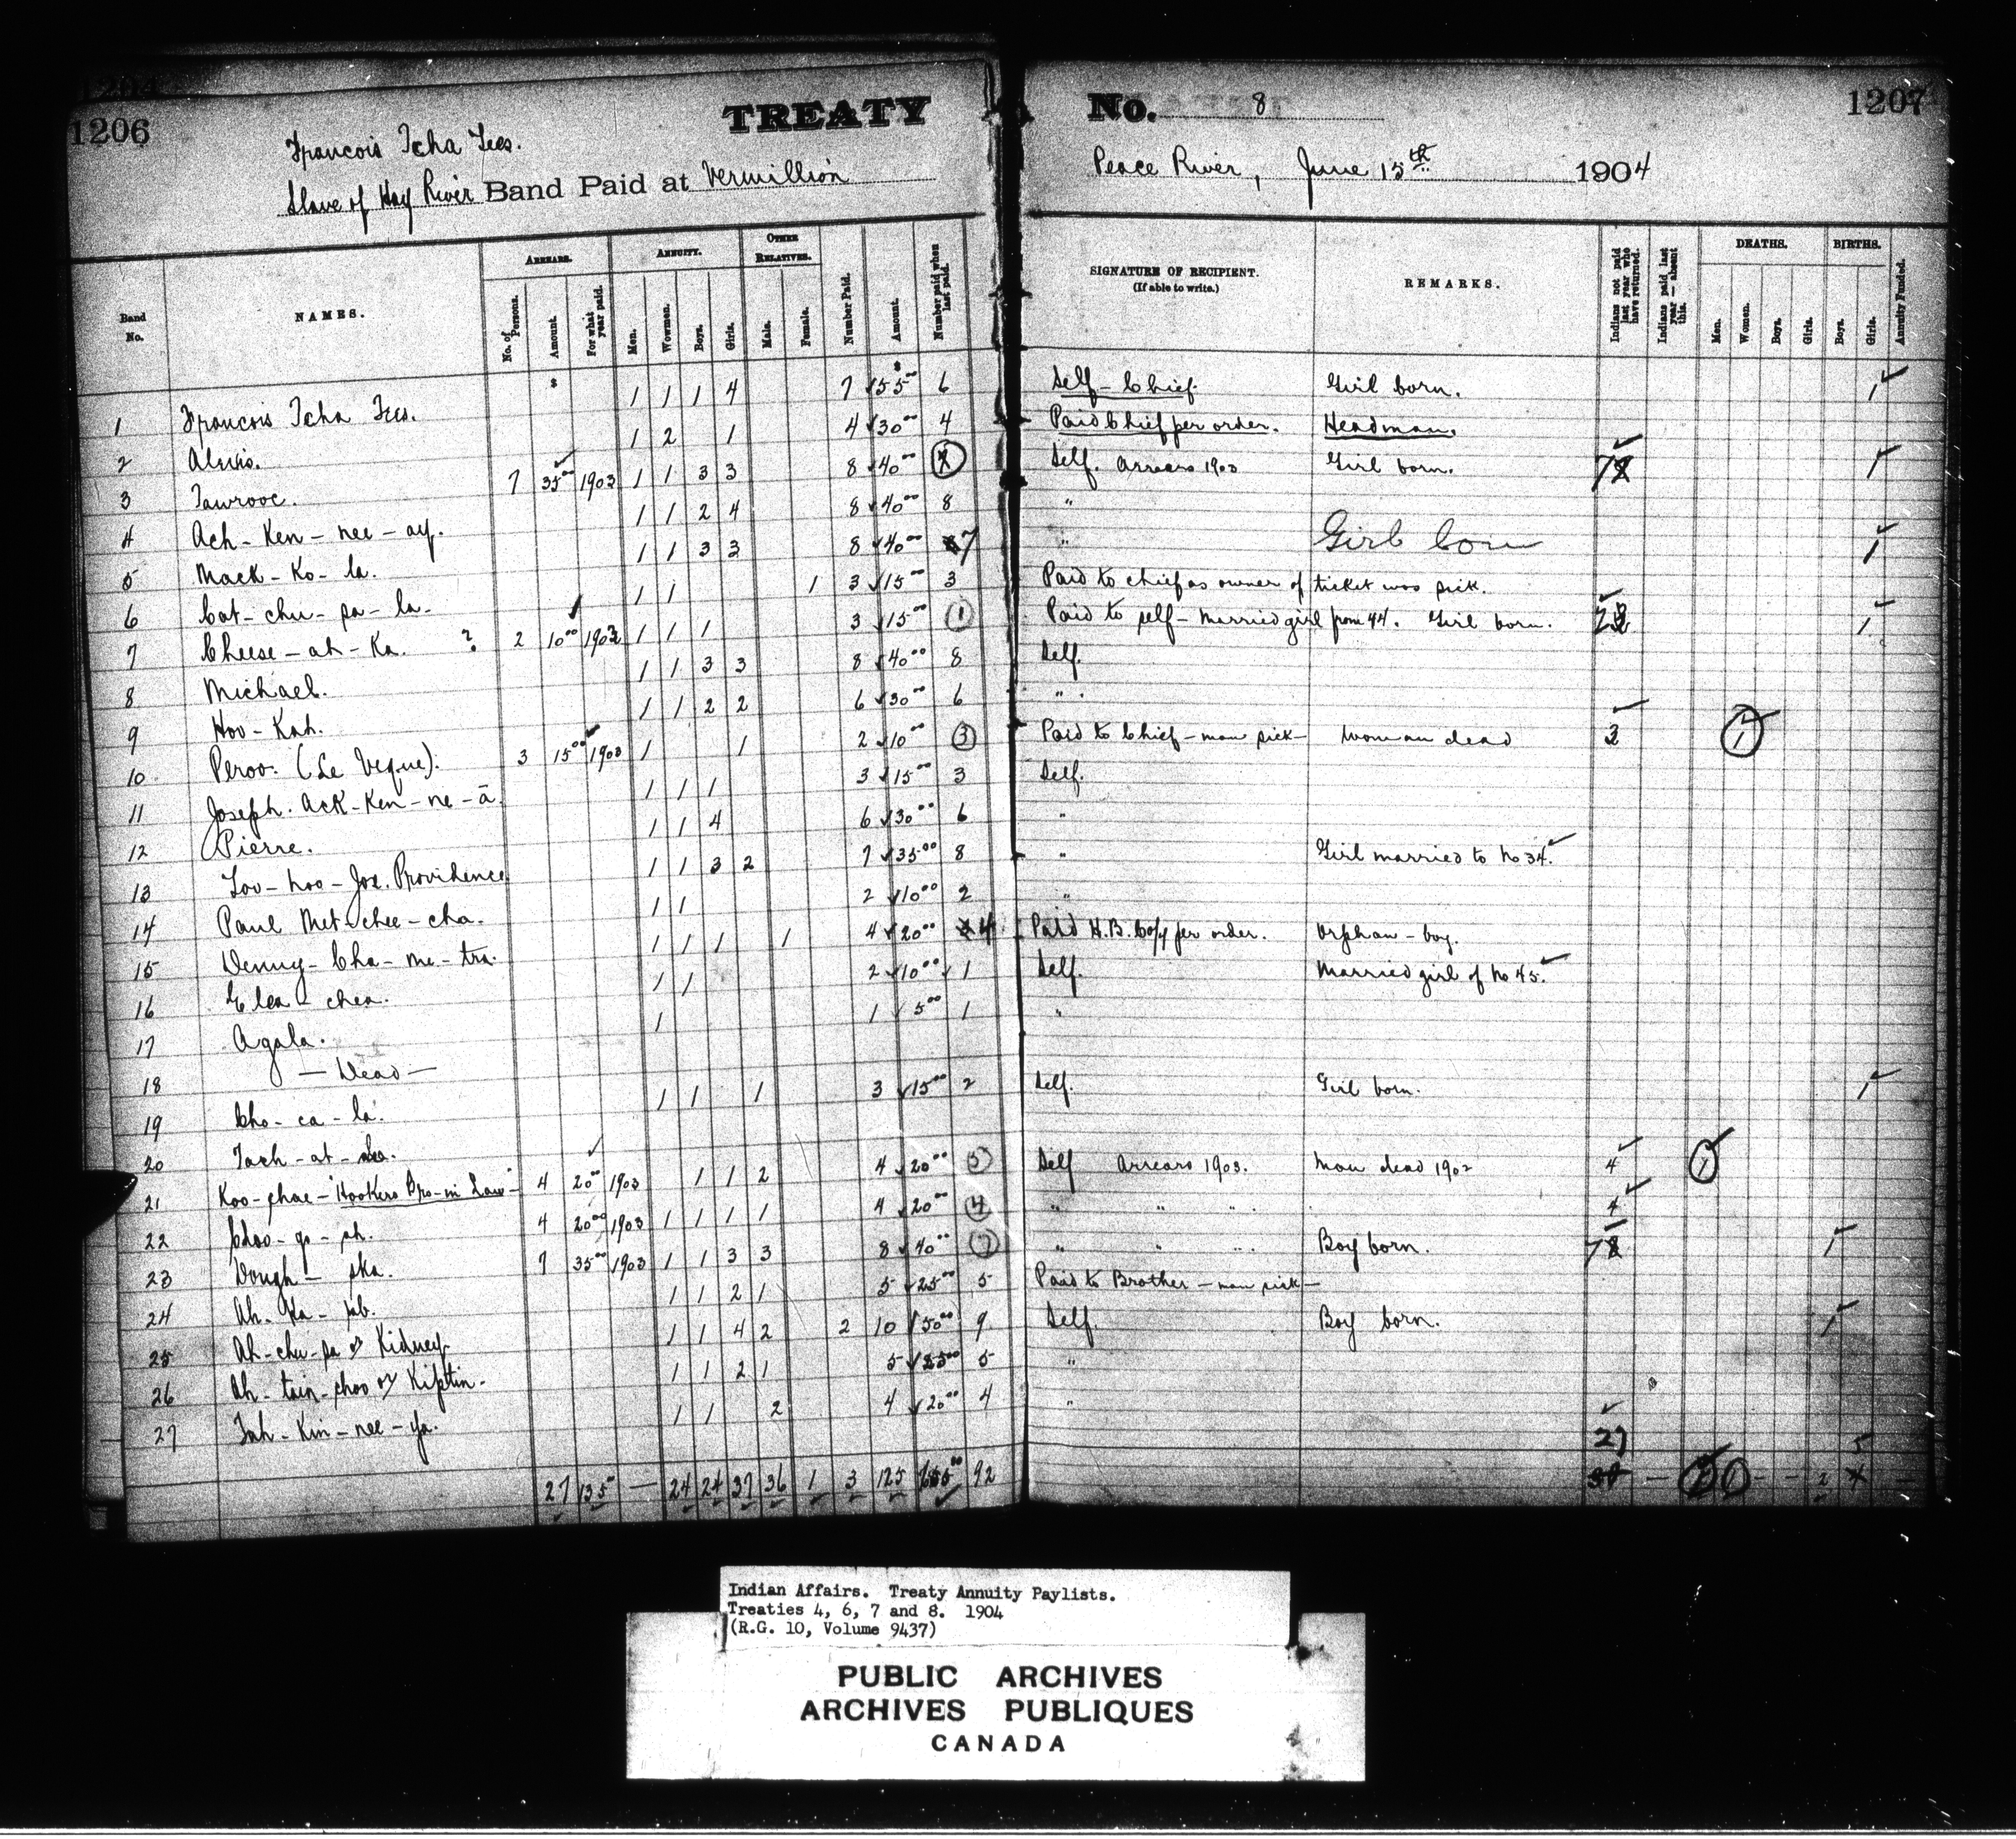 1206 TREATY No. 8 1207
Francois Tcha Tees.
Slave of Hay River Band Paid at Vermillion Peace River, June 15th 1904
Band No. NAMES. ARREARS. No. of Persons. Amount. For what year paid. ANNUITY. Men. Women. Boys. Girls. OTHER RELATIVES. Male. Female. Number Paid. Amount. Number paid when last paid. SIGNATURE OF RECIPIENT. (If able to write.) REMARKS. Indians not paid last year who have returned. Indians paid last year — absent this. DEATHS. Men. Women. Boys. Girls. BIRTHS. Boys. Girls. Annuity Funded.
1 Francois Tcha Tees. 1 1 1 4 7 55 00 6 Self - Chief. Girl born. 1
2 Alexis. 1 2 1 4 30 00 4 Paid Chief per order. Headman.
3 Tawrooe. 7 35 00 1903 1 1 3 3 8 40 00 7 Self. Arrears 1903 Girl born. 7 1
4 Ach - Ken - nee - ay. 1 1 2 4 8 40 00 8 "
5 Mack - Ko - la. 1 1 3 3 8 40 00 7 " Girl born 1
6 Cat - chu - pa - la - 1 1 1 3 15 00 3 Paid to chief as owner of ticket was sick.
7 Cheese - ah - Ka. ? 2 10 00 1903 1 1 1 3 15 00 1 Paid to self - married girl from 44. Girl born. 2 1
8 Michael. 1 1 3 3 8 40 00 8 Self.
9 Hoo - Kah. 1 1 2 2 6 30 00 6 " .
10 Peroo. (Le Veque). 3 15 00 1903 1 1 2 10 00 3 Paid to Chief - man sick - Woman dead 3 1
11 Joseph. Ack - Ken - ne - ā. 1 1 1 3 15 00 3 Self.
12 Pierre. 1 1 4 6 30 00 6 "
13 Loo - hoo - Jos. Providence. 1 1 3 2 7 35 00 8 " Girl married to No 34.
14 Paul Met - chee - cha. 1 1 2 10 00 2 "
15 Denny - Cha - me - tra. 1 1 1 1 4 20 00 4 Paid H.B. Co/y per order. Orphan - boy.
16 Elea - chea. 1 1 2 10 00 1 Self. Married girl of No 45.
17 Agala. 1 1 5 00 1 "
18 — Dead —
19 Cho - ca - la. 1 1 1 3 15 00 2 Self. Girl born. 1
20 Tach - at -
21 Koo - chae - "Hookers Bro - in Law" - 4 20 00 1903 1 1 2 4 20 00 5 Self Arrears 1903. Man dead 1902 4 1
22 4 20 00 1903 1 1 1 1 4 20 00 4 " " " 4
23 Dough - ska. 7 35 00 1903 1 1 3 3 8 40 00 7 " " " Boy born. 7 1
24 1 1 2 1 5 25 00 5 Paid to Brother - man sick -
25 Ah - chu - sa or Kidney 1 1 4 2 2 10 50 00 9 Self. Boy born. 1
26 Ah - tsin - choo or Kiptin. 1 1 2 1 5 25 00 5 "
27 Tah - Kin - nee - ya. 1 1 2 4 20 00 4 "
27 5
27 135 00 — 24 24 37 36 1 3 125 655 00 92 — 1 - - 2 —
Indian Affairs. Treaty Annuity Paylists.
Treaties 4, 6, 7 and 8. 1904
(R.G. 10, Volume 9437)
PUBLIC ARCHIVES
ARCHIVES PUBLIQUES
CANADA